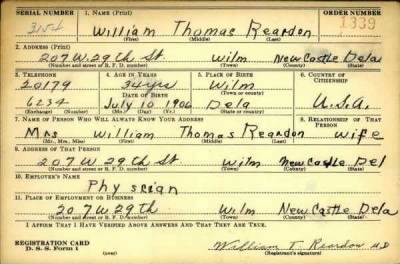 SERIAL NUMBER 1. NAME (Print) ORDER NUMBER
William Thomas Reardon 1339
(First) (Middle) (Last)
2. ADDRESS (Print)
207 W. 29th St. Wilm New Castle Dela
(Number and street or R. F. D. number) (Town) (County) (State)
3. TELEPHONE 4. AGE IN YEARS 5. PLACE OF BIRTH 6. COUNTRY OF CITIZENSHIP
20179 34 yrs Wilm
DATE OF BIRTH (Town or county)
6234 July 10 1906 Dela U.S.A.
(Exchange) (Number) (Mo.) (Day) (Yr.) (State or country)
7. NAME OF PERSON WHO WILL ALWAYS KNOW YOUR ADDRESS 8. RELATIONSHIP OF THAT PERSON
Mrs William Thomas Reardon wife
(Mr., Mrs., Miss) (First) (Middle) (Last)
9. ADDRESS OF THAT PERSON
207 W 29th St. Wilm New Castle Del
(Number and street or R. F. D. number) (Town) (County) (State)
10. EMPLOYER'S NAME
Physcian
11. PLACE OF EMPLOYMENT OR BUSINESS
207 W 29th Wilm New Castle Dela
(Number and street or R. F. D. number) (Town) (County) (State)
I AFFIRM THAT I HAVE VERIFIED ABOVE ANSWERS AND THAT THEY ARE TRUE.
REGISTRATION CARD William T. Reardon M.D
D. S. S. Form 1 (over) (Registrant's signature)